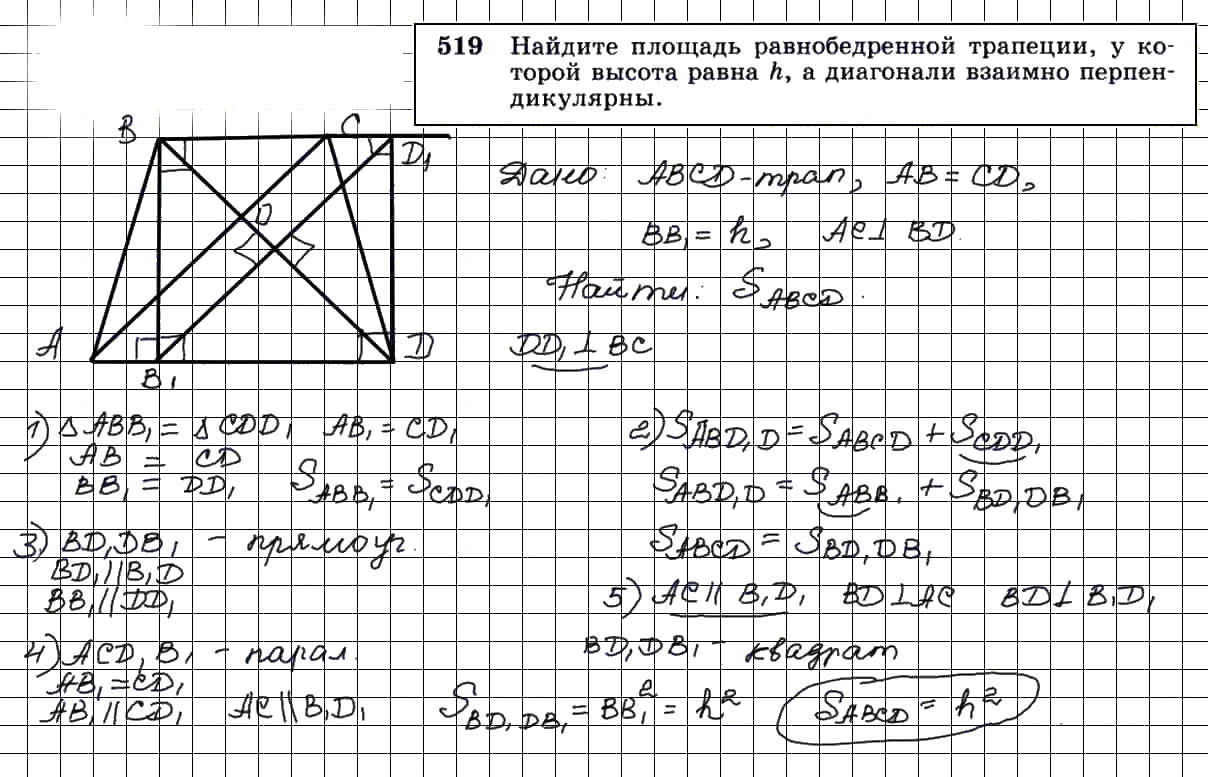 519 Найдите площадь равнобедренной трапеции, у ко-
торой высота равна h, а диагонали взаимно перпен-
дикулярны.
B C D₁
O
A B₁ D
Дано: ABCD-трап, AB = CD,
BB₁ = h, AC ⊥ BD.
Найти: S_ABCD.
DD₁ ⊥ BC
1) △ABB₁ = △CDD₁ AB₁ = CD₁
AB = CD
BB₁ = DD₁ S_ABB₁ = S_CDD₁
2) S_ABD₁D = S_ABCD + S_CDD₁
S_ABD₁D = S_ABB₁ + S_BD₁DB₁
S_ABCD = S_BD₁DB₁
3) BD₁DB₁ - прямоуг.
BD₁ || B₁D
BB₁ || DD₁
4) ACD₁B₁ - парал.
AB₁ = CD₁
AB₁ || CD₁ AC || B₁D₁
5) AC || B₁D₁ BD ⊥ AC BD ⊥ B₁D₁
BD₁DB₁ - квадрат
S_BD₁DB₁ = BB₁² = h² S_ABCD = h²